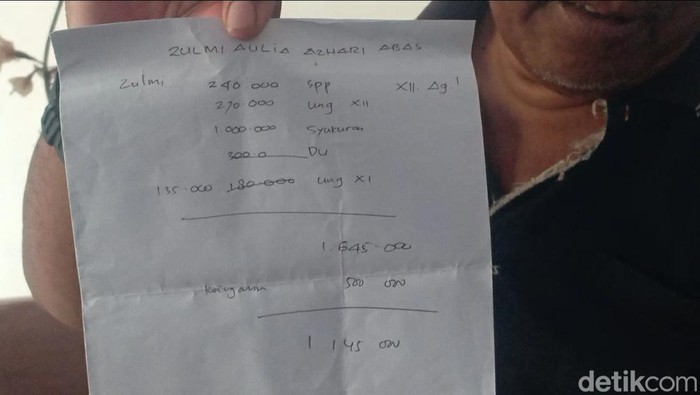 ZULMI AULIA AZHARI ABAS
Zulmi 240.000 Spp XII. Ag 1
270.000 Ung XII
1.000.000 Syukuran
300 0 DU
135.000 180.000 Ung XI
1.645.000
500 000
1 145 000
detikcom